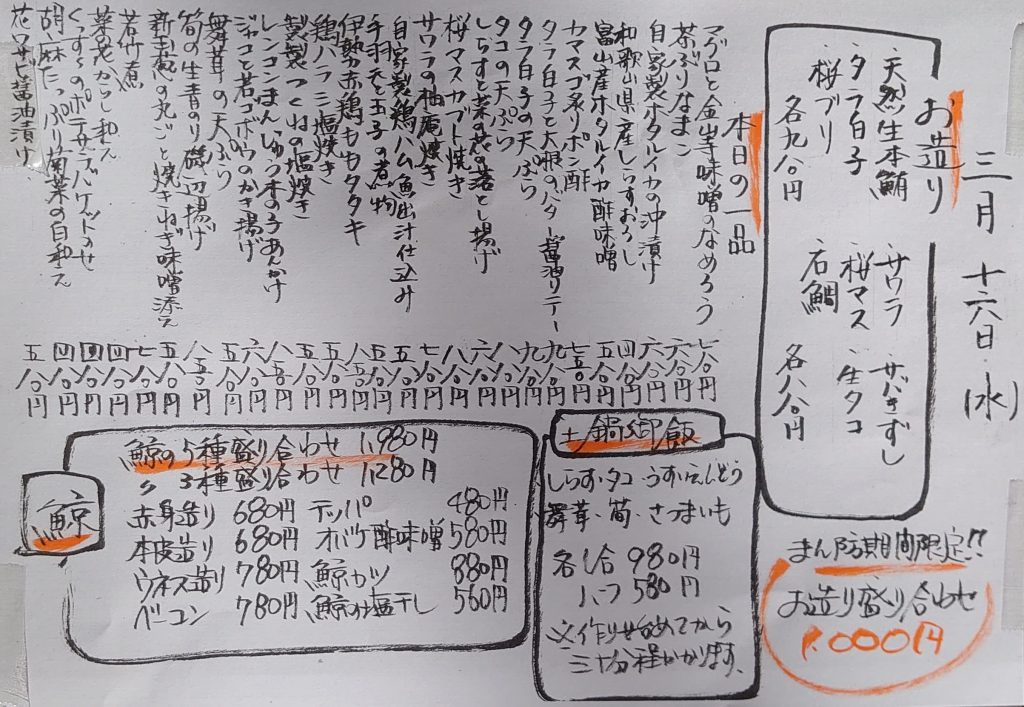 三月 十六日 (水)
お造り
・天然生本鮪 ・サウラ ・サバきずし
・タラ白子 ・桜マス ・生タコ
・桜ブリ ・石鯛
各九八〇円 各八八〇円
まん防期間限定!!
お造り盛り合わせ
1.000円
本日の一品
マグロと金山寺味噌のなめろう 七八〇円
茶ぶりなまこ 六八〇円
自家製ホタルイカの沖漬け 六八〇円
和歌山県産しらすおろし 四八〇円
富山産ホタルイカ酢味噌
カマスゴ炙りポン酢
タラ白子と大根のバター醤油ソテー
タラ白子の天ぷら
タコの天ぷら
しらすと菜の花の落とし揚げ
桜マスカブト焼き
サワラの柚庵焼き
自家製鶏ハム魚出汁仕込み
手羽元と玉子の煮物
伊勢赤鶏ももタタキ
鶏ハラミ塩焼き
自家製つくねの塩焼き
レンコンまんじゅう木の子あんかけ
ジャコと若ゴボウのかき揚げ
舞茸の天ぷら
筍の生青のり磯辺揚げ
新玉葱の丸ごと焼きねぎ味噌添え
若竹煮
菜花からし和え 四八〇円
くんすものポテサラバケットのせ 四八〇円
胡麻たっぷり菊菜の白和え 四八〇円
花ワサビ醤油漬け 五八〇円
土鍋御飯
しらす・タコ・うすいえんどう
舞茸・筍・さつまいも
各1合 980円
ハーフ 580円
※作り始めてから
三十分程かかります。
鯨
鯨の5種盛り合わせ 1,980円
〃 3種盛り合わせ 1,280円
赤身造り 680円 テッパ 480円
本皮造り 680円 オバケ酢味噌 580円
ウネス造り 780円 鯨カツ 880円
ベーコン 780円 鯨の塩干し 560円